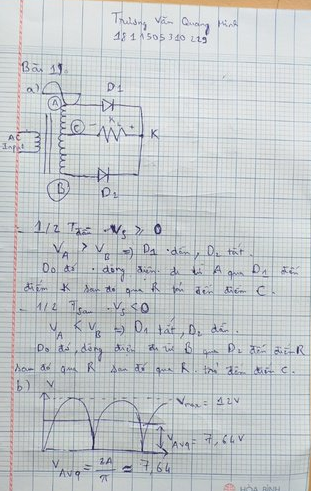 Trương Văn Quang Minh
1811505310229
Bài 19.
a)
D1
A
C
-
R
+
K
AC
Input
B
D2
- 1/2 T đầu Vs ≥ 0
VA > VB => D1 dẫn, D2 tắt.
Do đó dòng điện đi từ A qua D1 đến
điểm K sau đó qua R tới đến điểm C.
- 1/2 T sau Vs < 0
VA < VB => D1 tắt, D2 dẫn.
Do đó, dòng điện đi từ B qua D2 đến điểm R
sau đó qua R sau đó qua R đến điểm C.
b)
V
Vmax = 12V
VAvg = 7,64V
VAvg = 2A/π ≈ 7,64
HÒA BÌNH